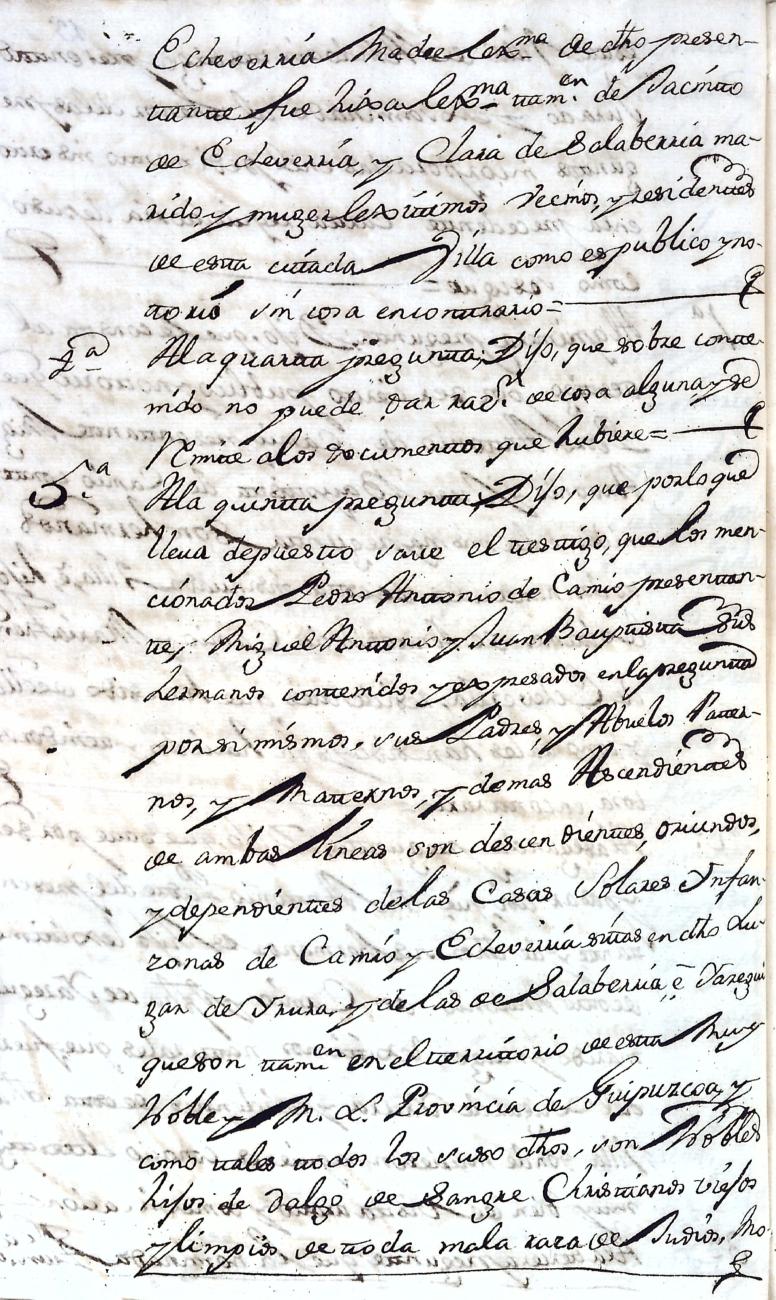 Echeverria Madre lex.ma de dho presen-
tante fue hixa lex.ma tam.en de Jacinto
de Echeverria, y Clara de Salaberria ma-
rido y muger lexitimos vecinos, y residentes
de esta citada Villa como es publico y no-
torio sin cosa encontrario=
4.a A la quarta pregunta, Dijo, que sobre conte-
nido no puede dar raz.n de cosa alguna, y se
remite a los documentos que hubiere=
5.a A la quinta pregunta, Dijo, que por lo que
lleva depuesto save el testigo, que los men-
cionados Pedro Antonio de Camio presentan-
te, Miguel Antonio y Juan Bauptista sus
hermanos contenidos y expresados en la pregunta
por si mismos, sus Padres, y Abuelos Pater-
nos, y Maternos, y demas Ascendientes
de ambas lineas son descendientes, oriundos,
y dependientes de las Casas Solares Ynfan-
zonas de Camio y Echeverria sitas en dho Lu-
gar de Yrura, y de las de Salaberria, e Yaregui
que son tam.en en el territorio de esta Muy
Noble y M. L. Provincia de Guipuzcoa, y
como tales todos los suso dhos, son Nobles
hijos de dalgo de Sangre Christianos viejos
y limpios de toda mala raza de Judios, Mo-